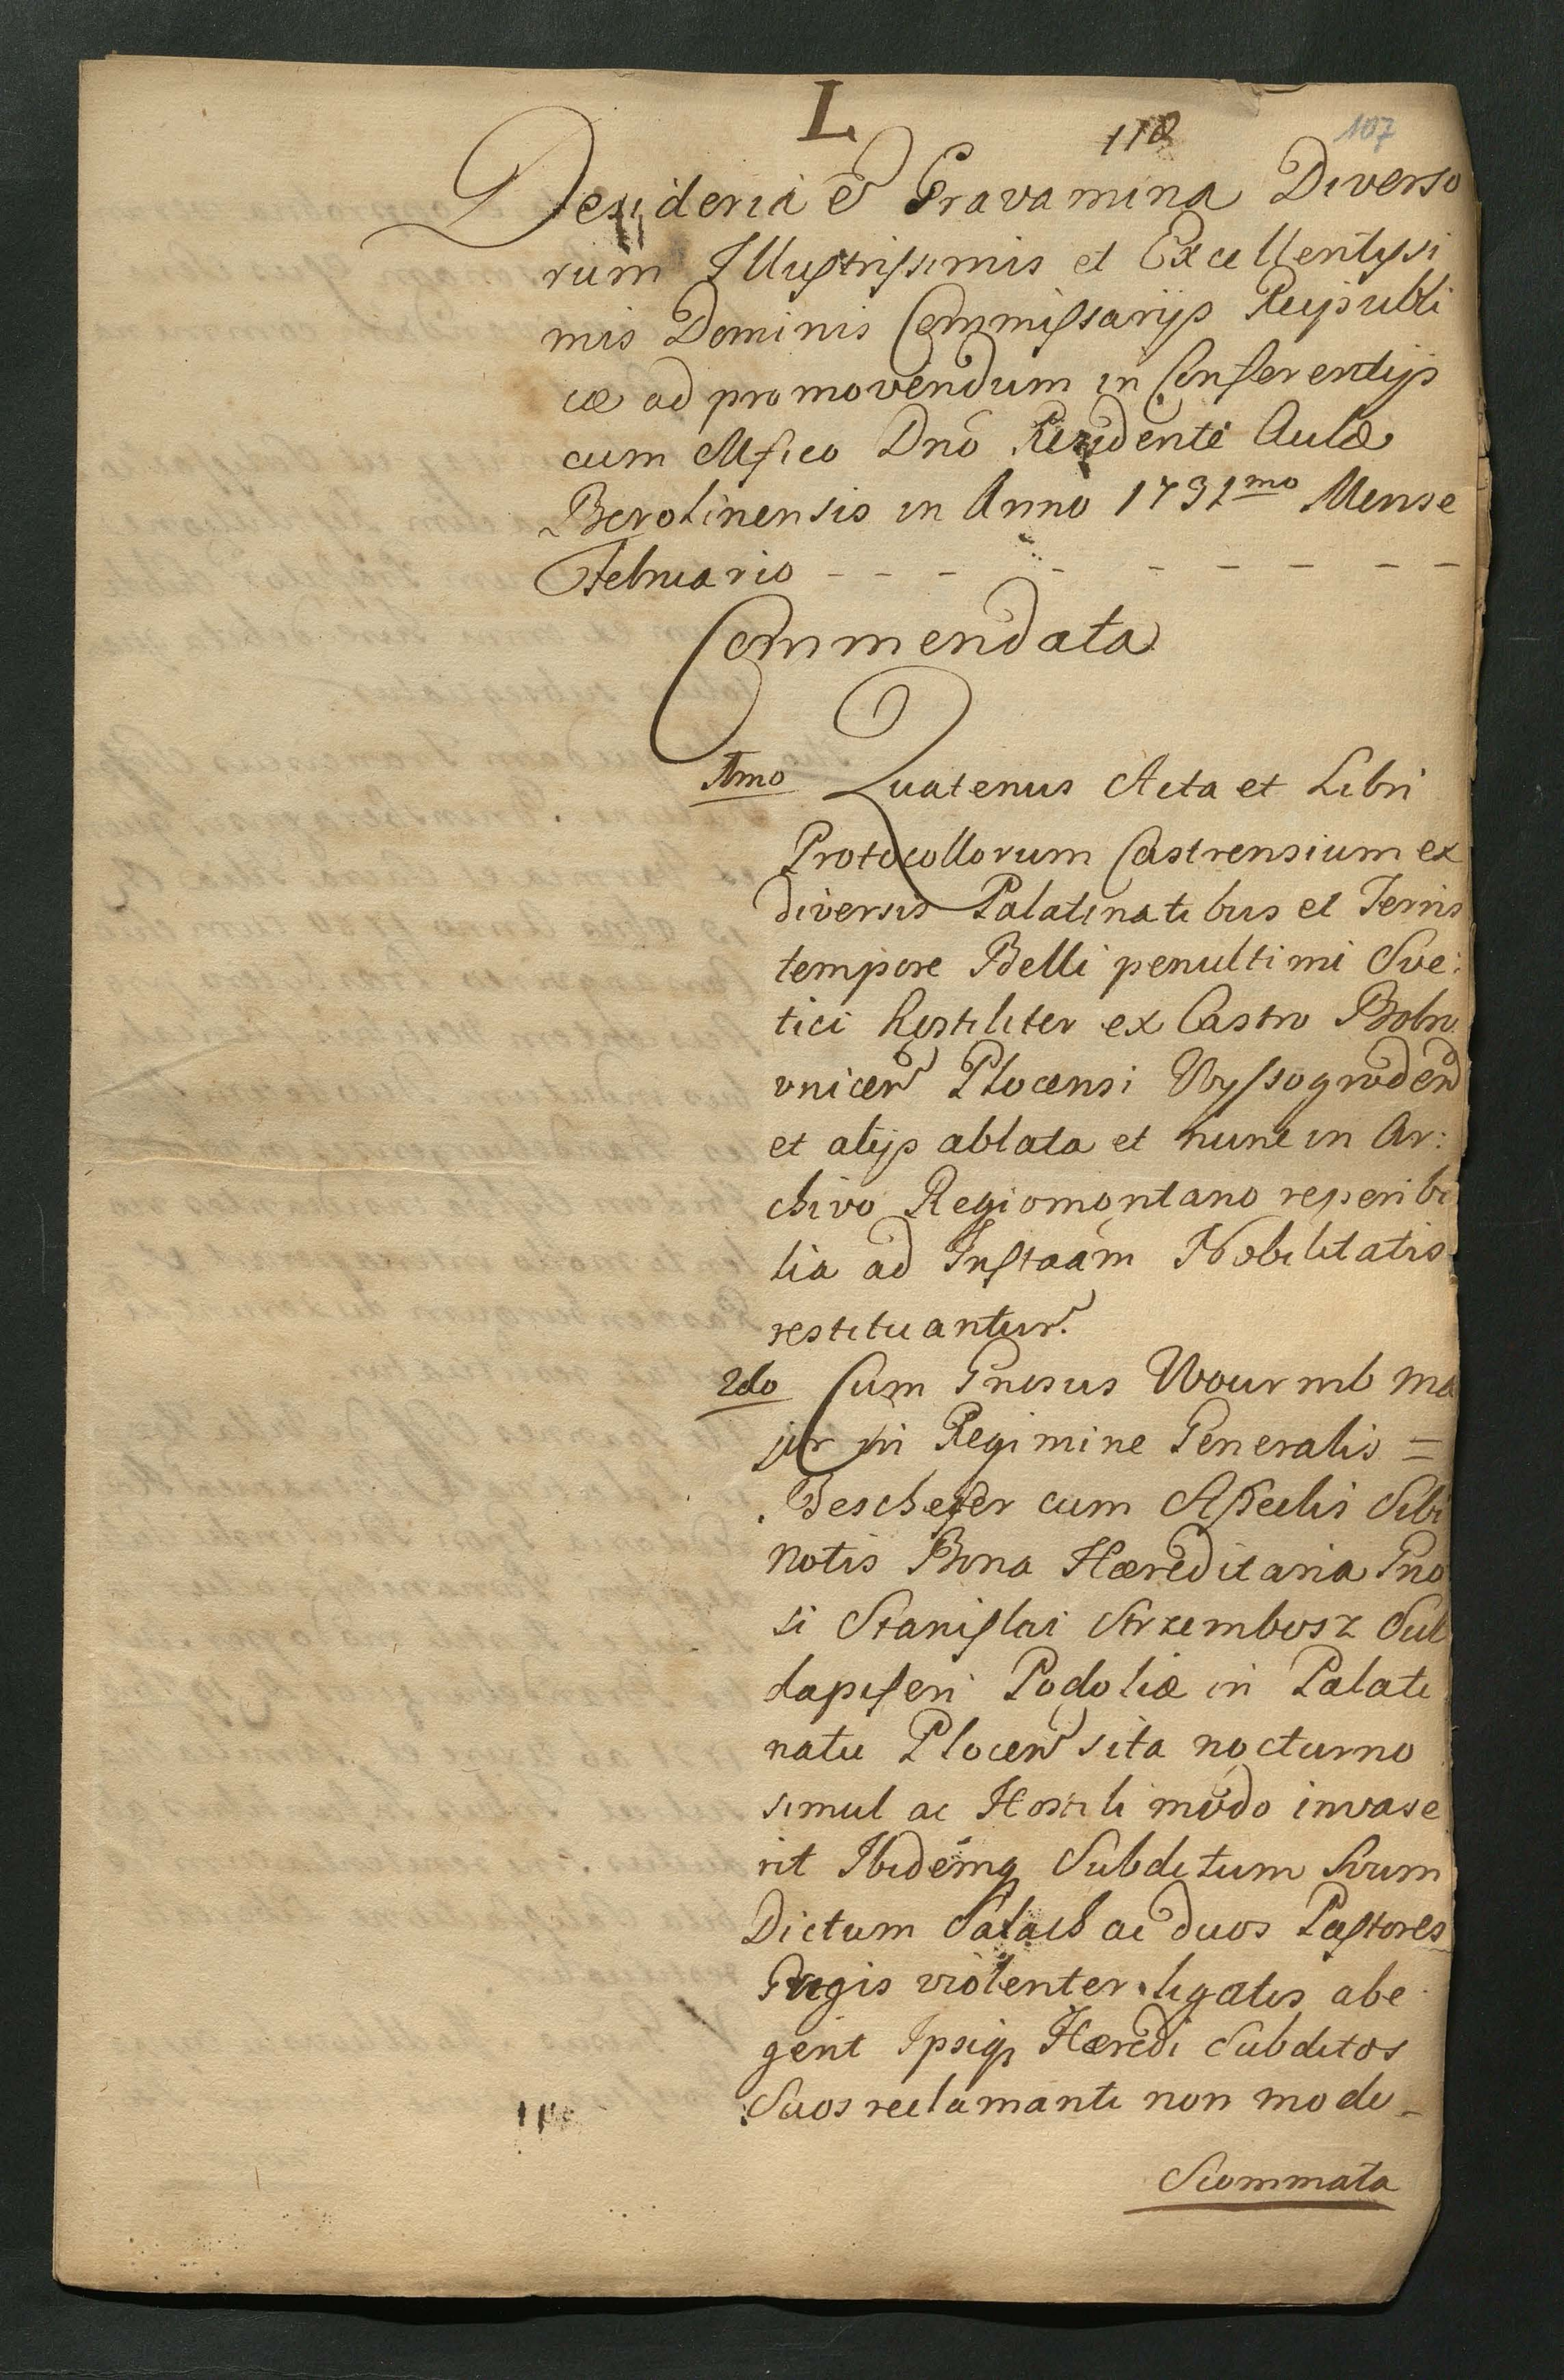 L
110 107
Desideria et Gravamina Diverso
rum Illustrissimis et Excellentissi
mis Dominis Commissarijs Reipubli
cæ ad promovendum in Conferentijs
cum Mfico Dno Rezidente Aulæ
Berolinensis in Anno 1731mo Mense
Februario - - - - - - - - -
Commendata
1mo Quatenus Acta et Libri
Protocollorum Castrensium ex
diversis Palatinatibus et Terris
tempore Belli penultimi Sve:
tici hostiliter ex Castro Bobro
vnicen Plocensi Wyssogroden
et alijs ablata et nunc in Ar:
chivo Regiomontano reperibi
lia ad Instaam Nobilitatis
restituantur.
2do Cum Gnosus Wourmb Ma
jor in Regimine Generalis =
Beschefer cum Asseclis Sibi
notis Bona Hæreditaria Gno
si Stanislai Strzembosz Sub
dapiferi Podoliæ in Palati
natu Plocen sita nocturno
simul ac Hostili modo invase
rit Ibidemq Subditum Suum
Dictum Salach ac duos Pastores
Gregis violenter ligatis abe
gerit Ipsiq Hæredi Subditos
Suos reclamanti non modo -
Scommata